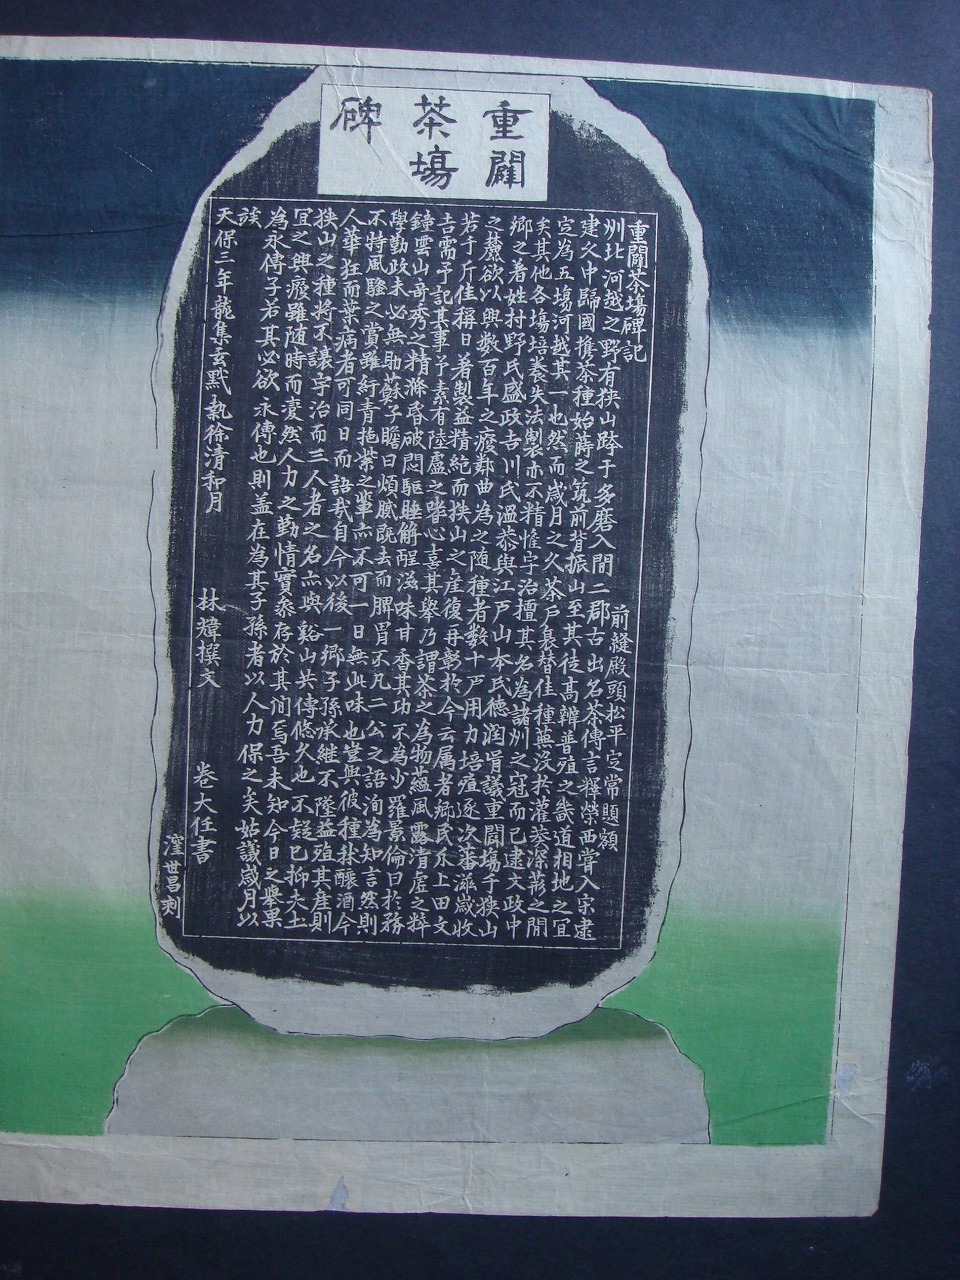 重闢
茶塲
碑
重闢茶塲碑記
前縫殿頭松平定常題額
州北河越之野有狹山跨于多磨入間二郡古出名茶傳言釋榮西嘗入宋逮
建久中歸國携茶種始蒔之筑前背振山至其徒高辨普殖之畿道相地之宜
定為五塲河越其一也然而歲月之久茶戸衰替佳種蕪没於灌莽深菰之間
矣其他各塲培養失法製亦不精惟宇治擅其名為諸州之冠而已逮文政中
鄉之著姓村野氏盛政吉川氏溫恭與江戸山本氏德潤胥議重闢塲于狹山
之麓欲以興數百年之癈鄰曲為之随種者數十戸用力培殖逐次蕃滋歲收
若干斤佳稱日著製益精絶而狹山之産復再彰於今云属者鄉民介上田文
吉需予記其事予素有陸盧之嗜心喜其舉乃謂茶之為物蘊風露清虚之粹
鐘雲山奇秀之精滌昏破悶驅睡解酲滋味甘香其功不為少羅景倫曰於務
學勤政未必無助蘇子瞻曰煩膩既去而脾胃不凡二公之語洵為知言然則
不特風騷之賞雖紆青拖紫之輩亦不可一日無此味也豈與彼種秫釀酒令
人華狂而葉病者可同日而語哉自今以後一鄉子孫承継不墜益殖其産則
狹山之種将不讓宇治而三人者之名亦與谿山共傳悠久也不疑已抑夫土
宜之興癈雖随時而變然人力之勤惰實参存於其間焉吾未知今日之舉果
為永傳乎若其必欲永傳也則盖在為其子孫者以人力保之矣姑議歲月以
諗
天保三年龍集玄黓執徐清和月
林㷆撰文
卷大任書
窪世昌刻